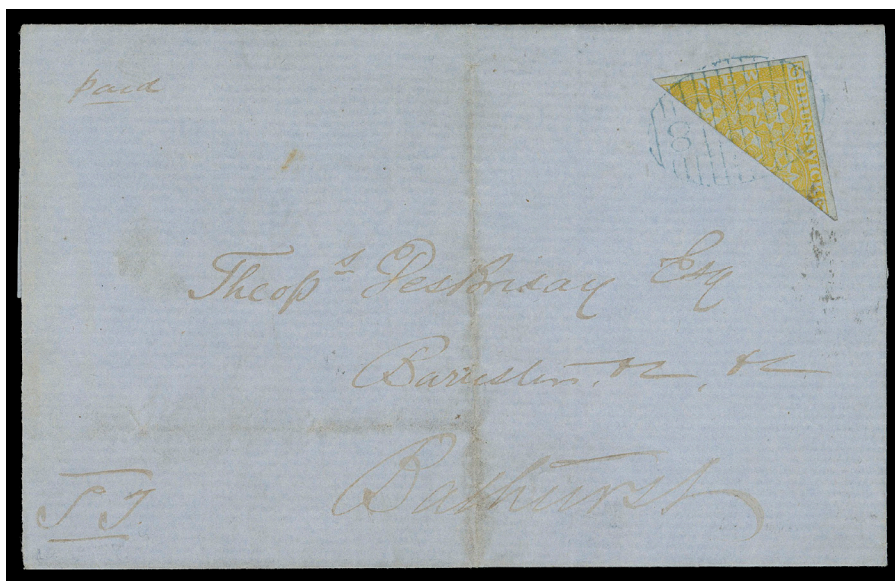 paid
8
Theop^s DesBrisay Esq
Barrister, &c, &c
Bathurst
S J.